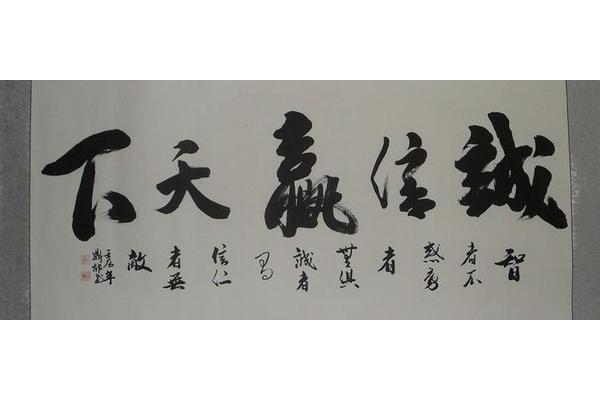 誠信贏天下
智
者不
惑勇
者
無懼
誠者
有
信仁
者無
敵